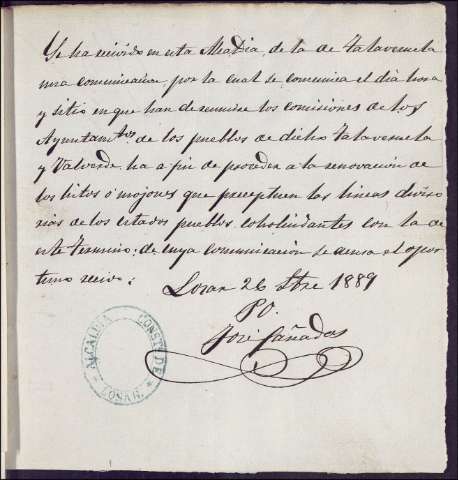 Se ha recivido en esta Alcaldia, de la de Talaveruela
una comunicacion por la cual se comunica el dia hora
y sitio en que han de reunirse los comisiones de los
Ayuntamtos de los pueblos de dicho Talaveruela
y Valverde ha a fin de proceder a la renovación de
los hitos ó mojones que preceptuen las lineas diviso
rias de los citados pueblos coholindantes con la de
este termino; de cuya comunicación se acusa el opor
tuno recivo:
Losar 26 Stre 1889
PO.
José Cañadas
ALCALDIA CONSTL DE
LOSAR.